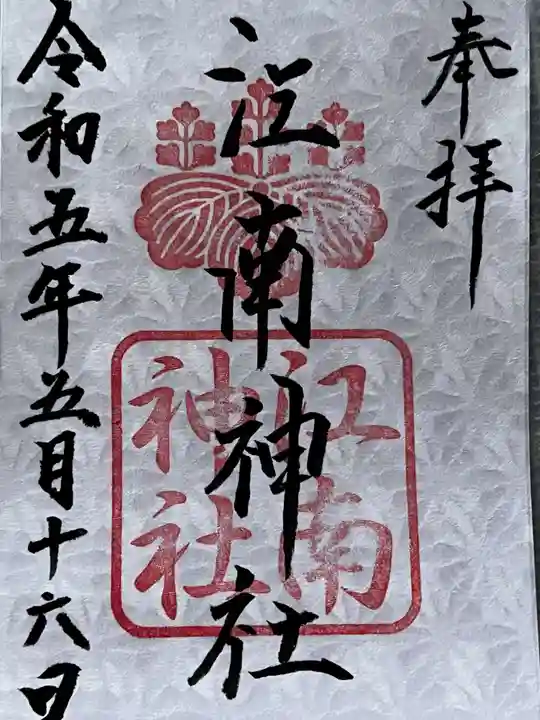 奉拝
江南神社
江南
神社
令和五年五月十六日